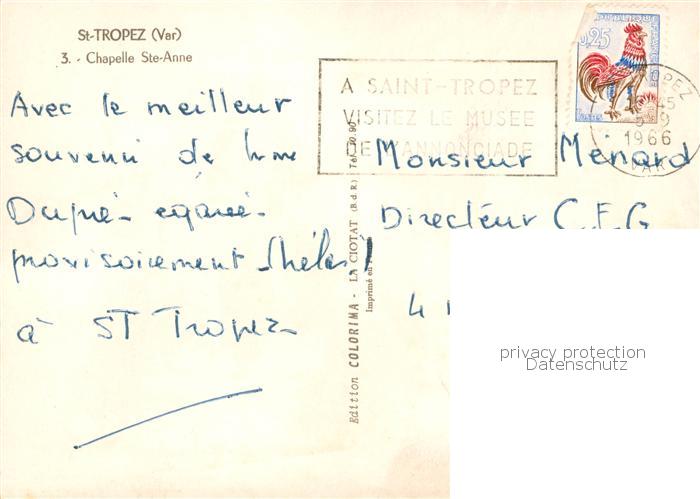 St-TROPEZ (Var)
3. - Chapelle Ste-Anne
Avec le meilleur
souvenir de
Dupré - égarée -
provisoirement - hélas !
à ST Tropez -
A SAINT-TROPEZ
VISITEZ LE MUSEE
DE L'ANNONCIADE
0,25
TROPEZ
1966
VAR
Monsieur Ménard
Directeur C.E.G
4
Edition COLORIMA - LA CIOTAT (B.d.R.)
Imprimé en
privacy protection
Datenschutz